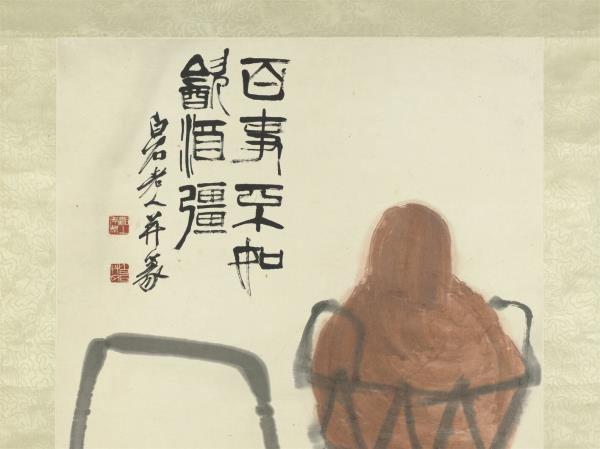 百事不如
㱃酒彊
白石老人并篆